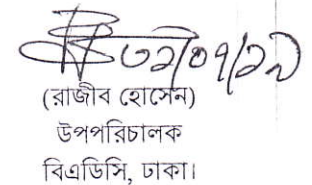 ৩১/০৭/১৯
(রাজীব হোসেন)
উপপরিচালক
বিএডিসি, ঢাকা।